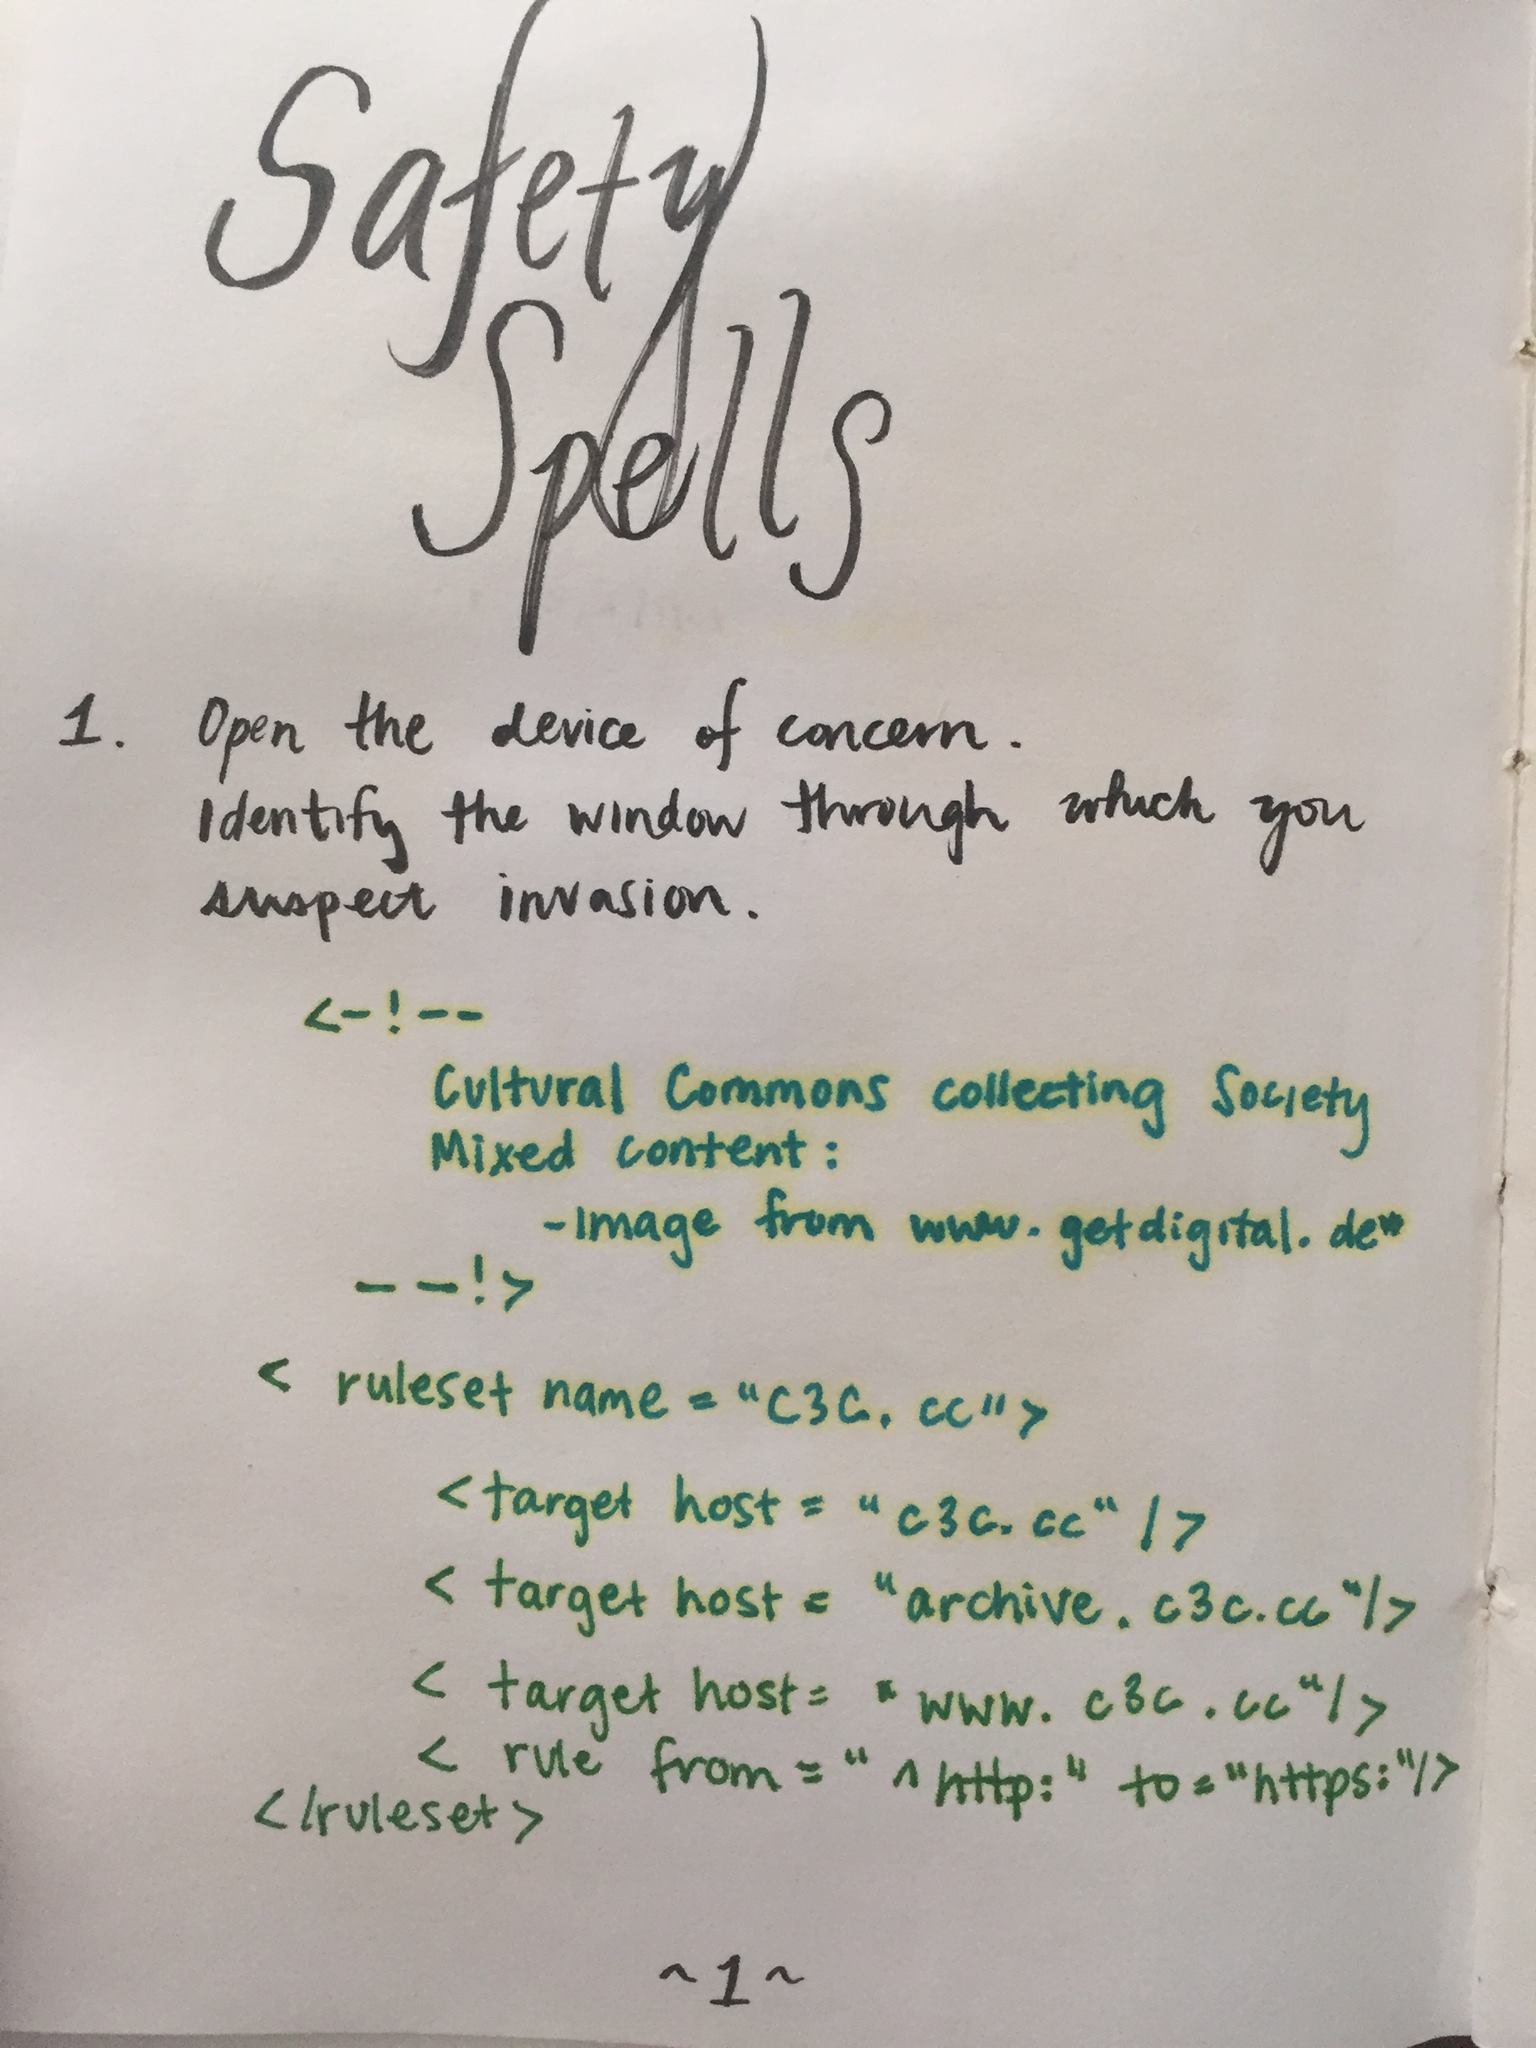 Safety
Spells
1. Open the device of concern.
Identify the window through which you
suspect invasion.
<-!--
Cultural Commons collecting Society
Mixed content:
-Image from www.getdigital.de"
--!>
< ruleset name = "C3C.cc">
<target host = "c3c.cc" />
< target host = "archive.c3c.cc"/>
< target host= "www.c3c.cc"/>
< rule from = "^http:" to="https:"/>
</ruleset>
~1~